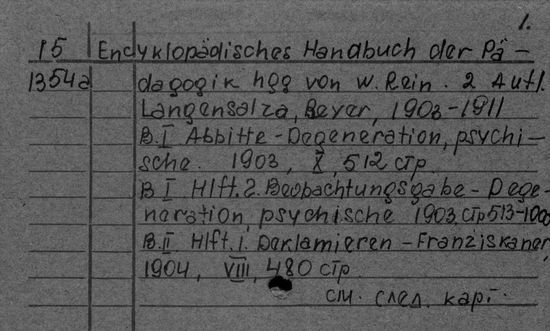 1.
15 Encyklopädisches Handbuch der Pä-
1354a dagogik hgg von W. Rein. 2 Aufl.
Langensalza, Beyer, 1903-1911
B.I Abbitte-Degeneration, psychi-
sche. 1903, X, 512 стр.
B I Hlft.2. Beobachtungsgabe-Dege-
neration, psychische 1903, стр 513-1000
B.II Hlft.1. Deklamieren-Franziskaner,
1904, VIII, 480 стр
см. след. карт.